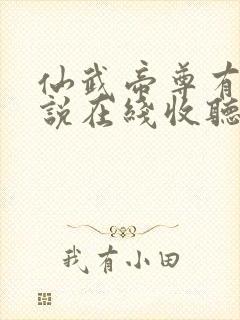 仙武帝尊有
説在綫收聽
我有小田